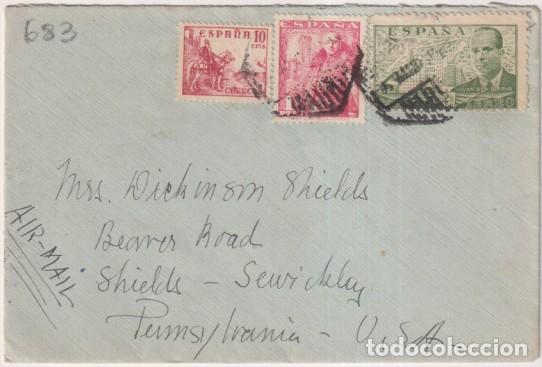 683
ESPAÑA
10
CTS
CORREOS
ESPAÑA
CORREOS
ESPAÑA
JUAN DE LA CIERVA
Mrs. Dickinson Shields
Beaver Road
Shields - Sewickley
Pennsylvania - U.S.A.
AIR-MAIL
todocoleccion.net